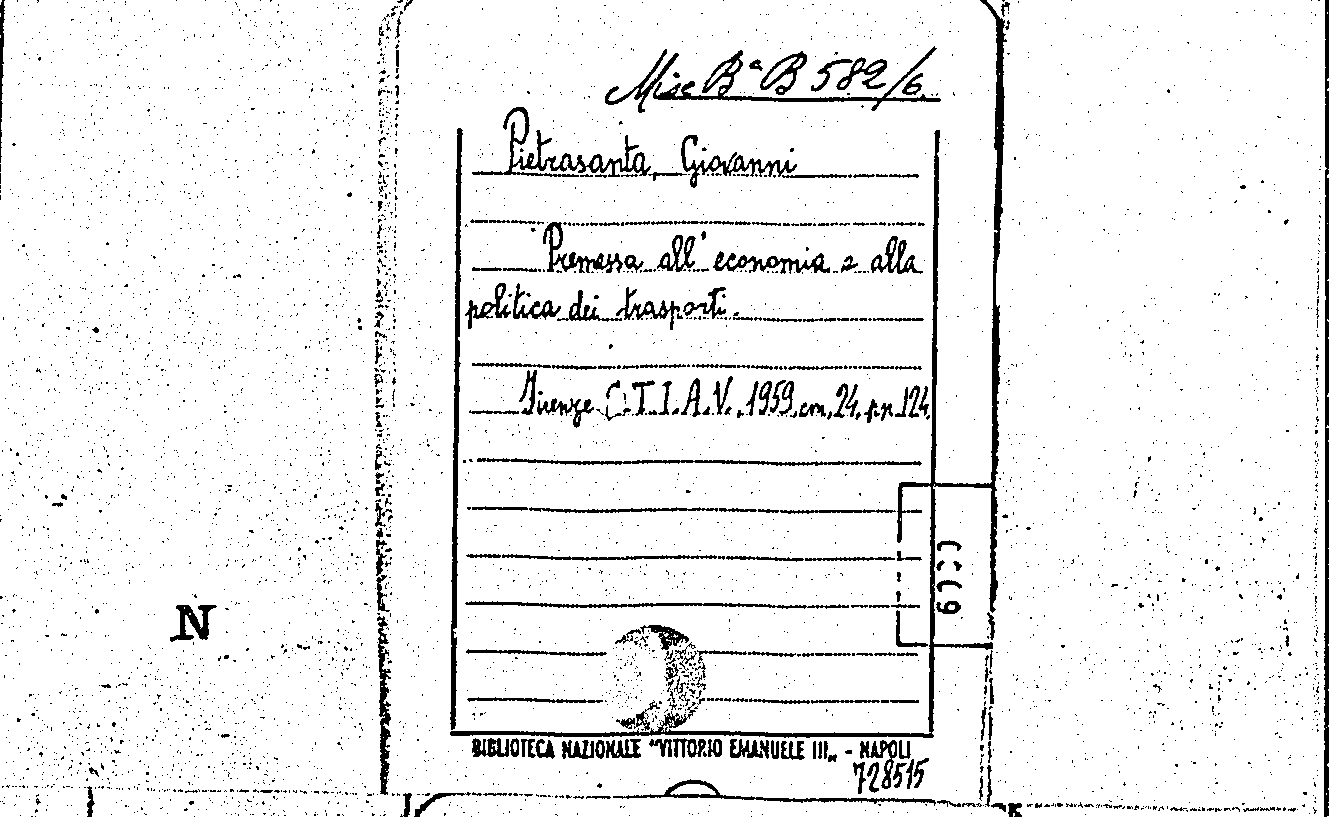 Misc Bª B 582/6
Pietrasanta, Giovanni
Premessa all' economia e alla
politica dei trasporti.
Firenze C.T.I.A.V., 1959, cm. 24, pp. 124.
N
BIBLIOTECA NAZIONALE "VITTORIO EMANUELE III„ - NAPOLI
728515